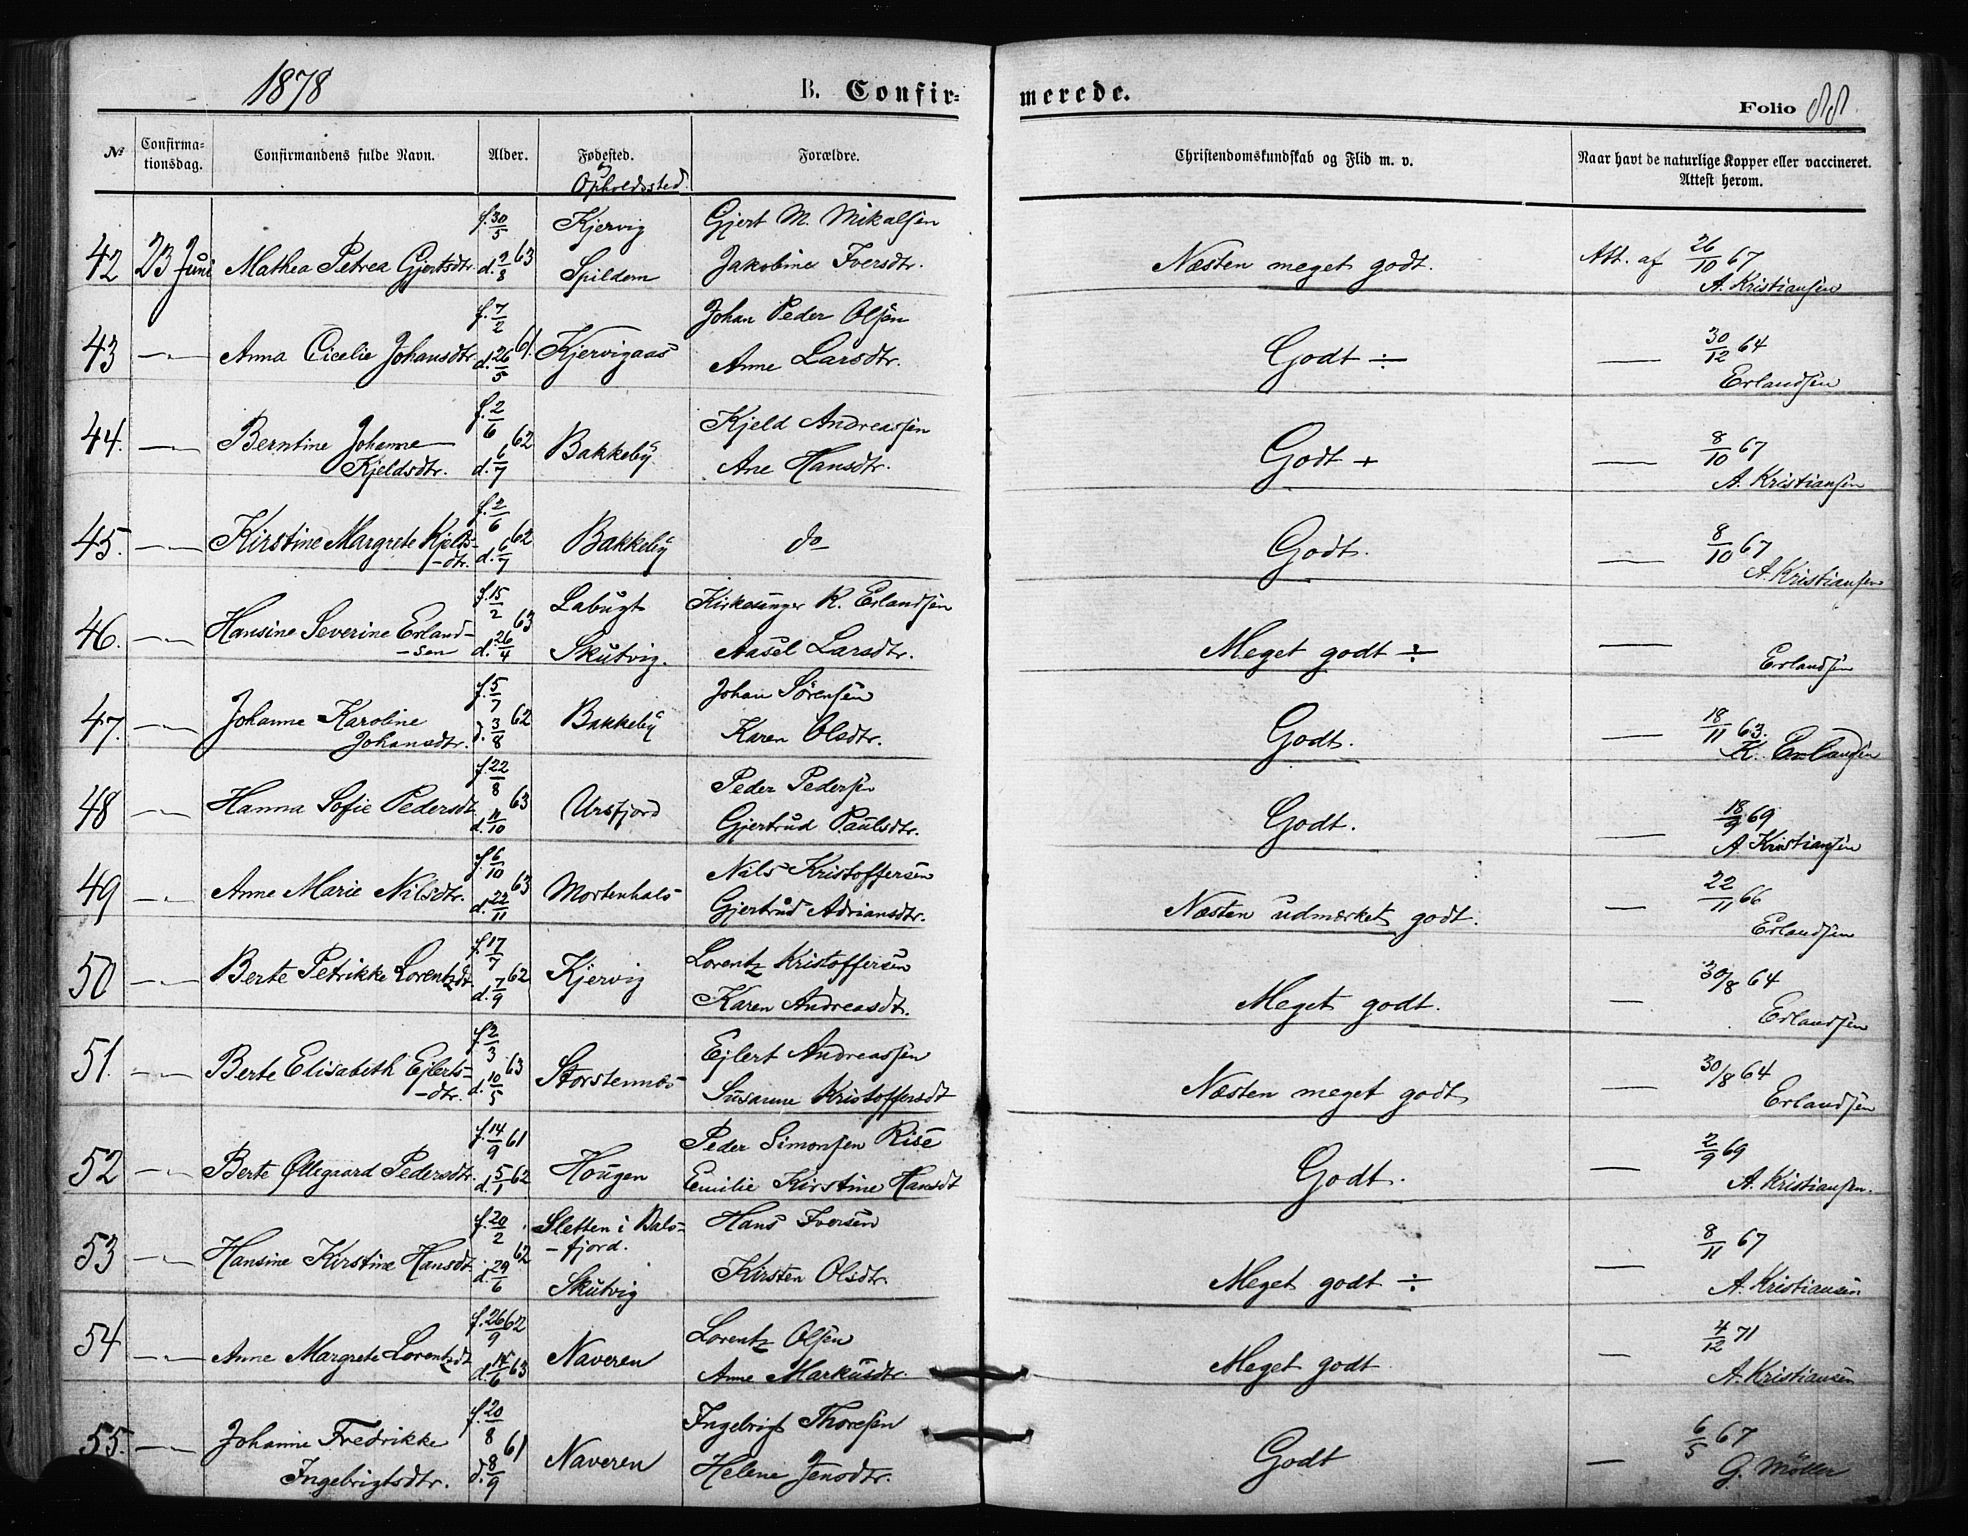 1878
B. Confir-
merede.
Folio 88
№
Confirma-
tionsdag.
Confirmandens fulde Navn.
Alder.
Fødested.
Opholdssted
Forældre.
Christendomskundskab og Flid m. v.
Naar havt de naturlige Kopper eller vaccineret.
Attest herom.
f. 30/5 Kjervig Gjert M. Mikalsen
42 23 Juni Mathea Petrea Gjertsdtr. d. 2/8 63 Spildern Jakobine Iversdtr. Næsten meget godt. Att. af 26/10 67
A. Kristiansen
f. 7/2 Johan Peder Olsen
43 —"— Anna Cicelie Johansdtr. d. 26/5 61. Kjervigaas Anne Larsdtr. Godt ÷ — 30/12 64
Erlandsen
f. 2/6 Kjeld Andreassen
44. —"— Berntine Johanne 62 Bakkeby Godt + — 8/10 67
Kjeldsdtr. d. 6/7 Ane Hansdtr. A. Kristiansen
f. 2/6
45. —"— Kirstine Margrete Kjelds- 62 Bakkeby do Godt. — 8/10 67
-dtr. d. 6/7 A. Kristiansen
f. 15/2 Labugt Kirkesanger K. Erlandsen
46. —"— Hansine Severine Erland- 63
-sen d. 26/4 Skutvig. Aasel Larsdtr. Meget godt ÷ — Erlandsen
f. 5/7 Johan Sørensen
47. —"— Johanne Karoline 62 Bakkeby Godt. — 18/11 63.
Johansdtr. d. 3/8 Karen Olsdtr. K. Erlandsen
f. 22/8 Peder Pedersen
48 —"— Hanna Sofie Pedersdt 63 Ursfjord Godt. — 18/9 69
d. 11/10 Gjertrud Paulsdtr. A. Kristiansen
f. 6/10 Nils Kristoffersen
49 —"— Anne Marie Nilsdtr. 63 Mortenhals Næsten udmærket godt. — 22/11 66
d. 22/11 Gjertrud Adriansdtr. Erlandsen
f. 17/7 Lorentz Kristoffersen
50 —"— Berte Petrikke Lorentzdt 62 Kjervig Meget godt. — 30/8 64
d. 7/9 Karen Andreasdt. Erlandsen
f. 2/3 Ejlert Andreassen
51. —"— Berte Elisabeth Ejlerts- 63 Storstennæs Næsten meget godt — 30/8 64
-dtr. d. 10/5 Susanne Kristoffersdt Erlandsen
f. 14/9 61 Peder Simonsen Rise
52 —"— Berte Ollegaard Pedersdtr. d. 5/1 62 Hougen Emilie Kirstine Hansdt Godt. — 2/9 69
A. Kristiansen.
f. 20/2 Sletten i Bals- Hans Iversen
-fjord.
53 —"— Hansine Kirstine Hansdt 62 — 8/11 67
d. 29/6 Skutvig Kirsten Olsdtr Meget godt ÷ A. Kristiansen
f. 26/9 62 Lorentz Olsen
54 —"— Anne Margrete Lorentzdt Naveren Meget godt — 4/12 71
d. 14/6 63 Anne Markusdtr. A. Kristiansen
f. 20/8 Ingebrigt Thoresen
55. —"— Johanne Fredrikke 61 Naveren Godt — 6/5 67
Ingebrigtsdtr. d. 8/9 Helene Jensdtr. G. Möller